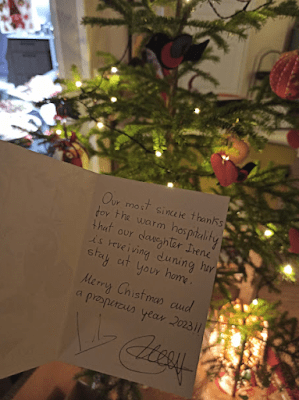 Our most sincere thanks
for the warm hospitality
that our daughter Irene
is receiving during her
stay at your home.
Merry Christmas and
a prosperous year 2023!!